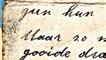 gun hun
Maar zo n
gooide dra